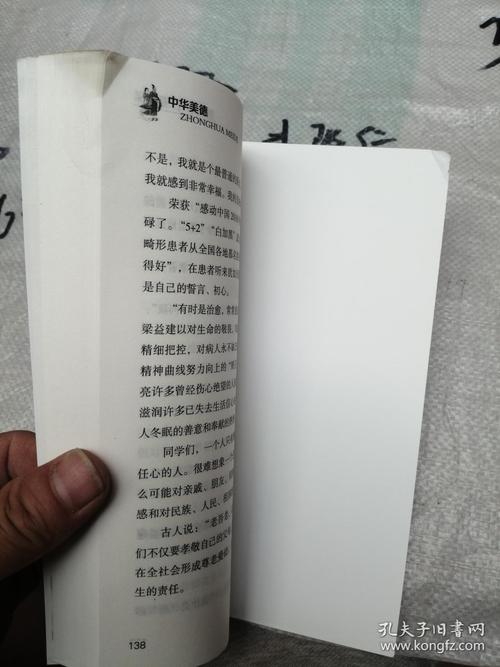 中华美德
ZHONGHUA MEIDE
不是，我就是个最普通的
我就感到非常幸福。我的
荣获“感动中国20
碌了。“5+2”“白加黑”
畸形患者从全国各地
得好”，在患者听来
是自己的誓言、初心。
“有时是治愈，常常
梁益建以对生命的敬畏、
精细把控，对病人永不
精神曲线努力向上的
亮许多曾经伤心绝望的人
滋润许多已失去生活信
人冬眠的善意和奉献的
同学们，一个人只有
任心的人。很难想象一个
么可能对亲戚、朋友、
感和对民族、人民、祖
古人说：“老吾老，
们不仅要孝敬自己的父
在全社会形成尊老爱幼
生的责任。
138
孔夫子旧书网
www.kongfz.com